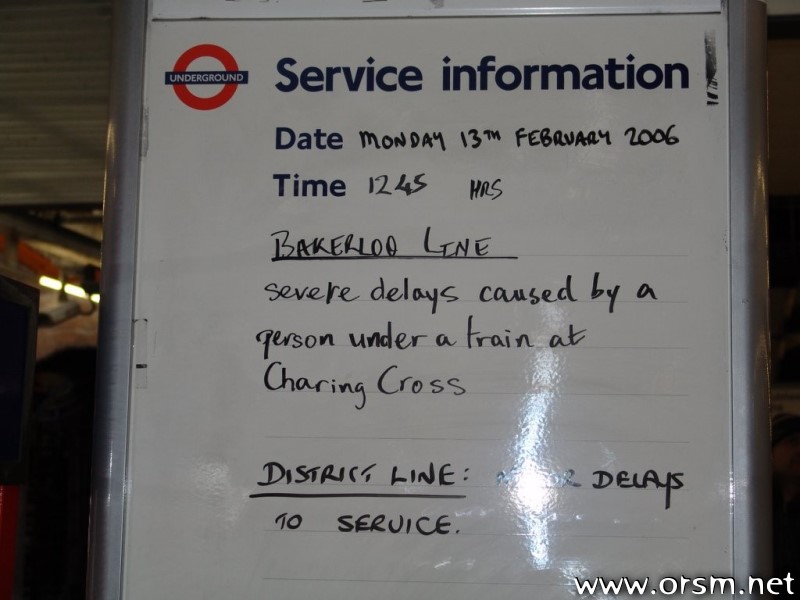 UNDERGROUND
Service information
Date MONDAY 13TH FEBRUARY 2006
Time 1245 HRS
BAKERLOO LINE
severe delays caused by a
person under a train at
Charing Cross
DISTRICT LINE: DELAYS
TO SERVICE.
www.orsm.net